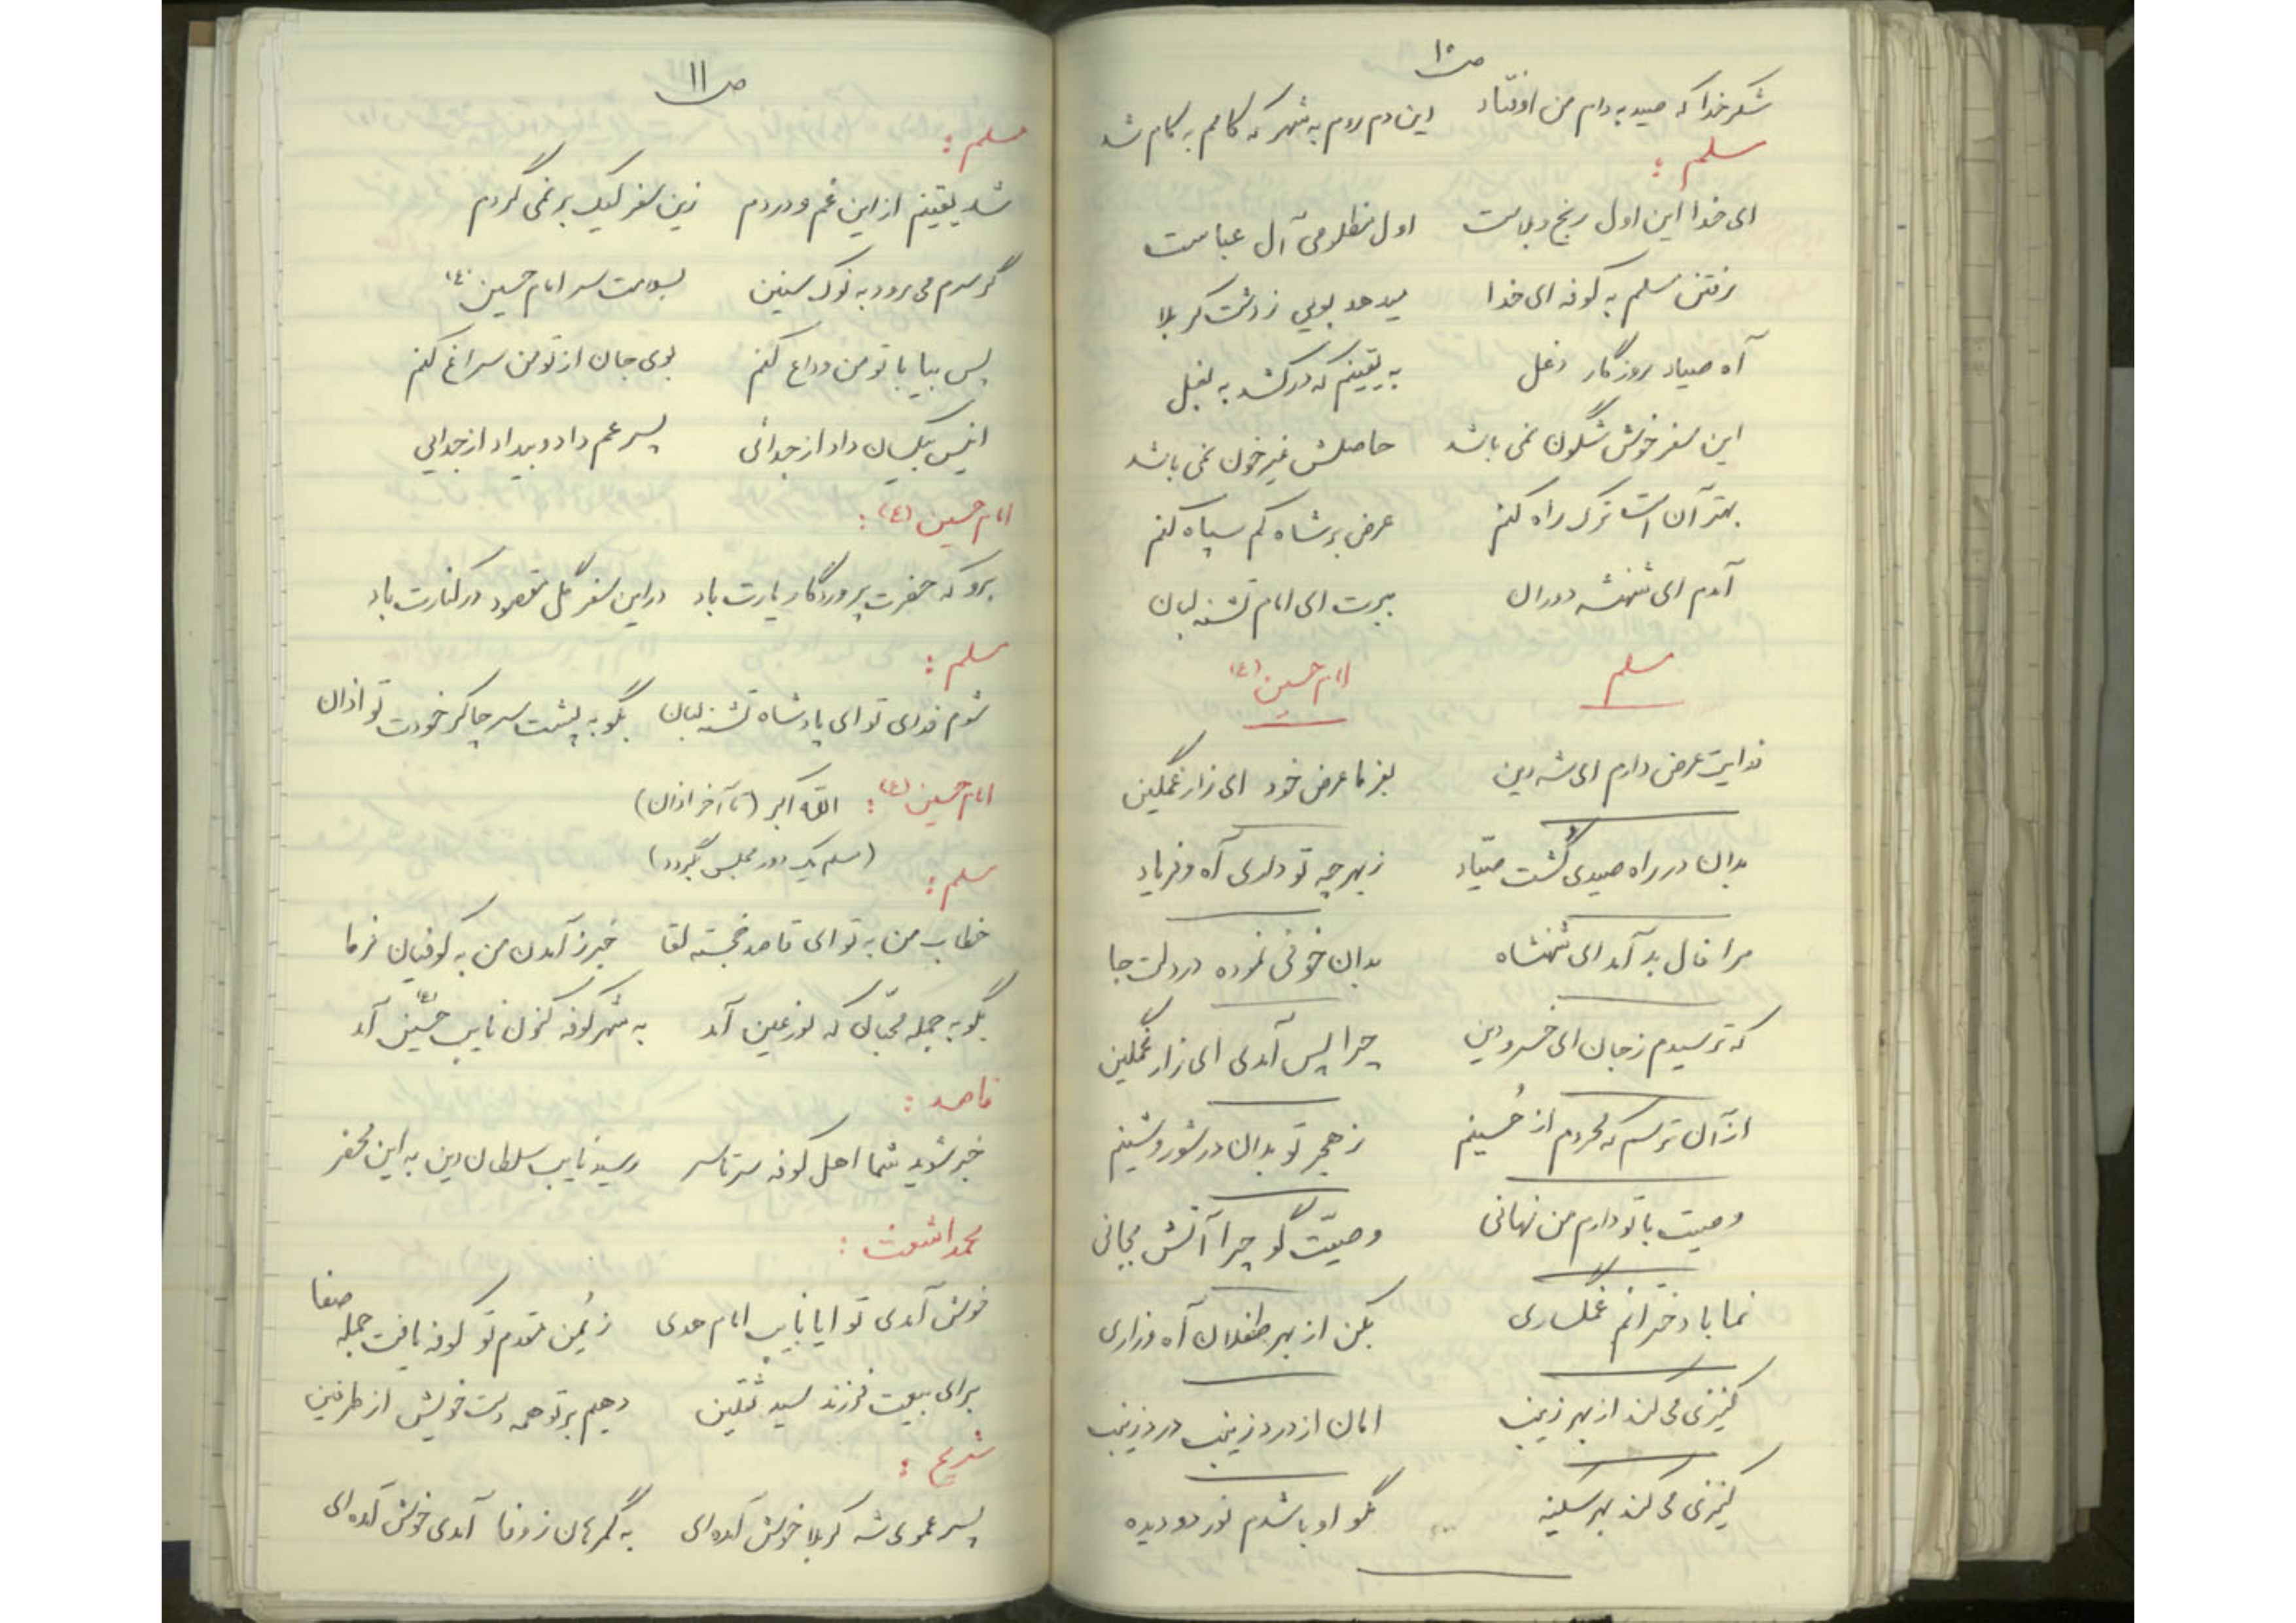 ص ۱۰
شکر خدا که صید به دام من اوفتاد این دم روم به شهر که کامم به کام شد
مسلم :
ای خدا این اول رنج و بلاست اول مظلومی آل عباست
رفتن مسلم به کوفه ای خدا میدهد بویی ز دشت کربلا
آه صیاد روزگار دغل به یقینم که درکشد به بغل
این سفر خوش شگون نمی باشد حاصلش غیر خون نمی باشد
بهتر آن است ترک راه کنم عرض بر شاه کم سپاه کنم
آمدم ای شهنشه دوران ببرت ای امام تشنه لبان
مسلم امام حسین (ع)
فدایت عرض دارم ای شه دین بفرما عرض خود ای زار غمگین
بدان در راه صیدی گشت صیّاد ز بهر چه تو داری آه و فریاد
مرا فال بد آمد ای شهنشاه بدان خوفی نموده در دلت جا
که ترسیدم ز جان ای خسرو دین چرا پس آمدی ای زار غمگین
از آن ترسم که محروم از حُسینم ز هجر تو بدان در شور و شینم
وصیت با تو دارم من نهانی وصیّت گو چرا آتش بجانی
نما با دخترانم غمگساری بکن از بهر طفلان آه و زاری
کنیزی می کند از بهر زینب امان از درد زینب درد زینب
کنیزی می کند بهر سکینه بگو او باشدم نور دو دیده
ص ۱۱
مسلم :
شد یقینم از این غم و دردم زین سفر لیک بر نمی گردم
گر سرم می رود به نوک سنین بسلامت سر امام حسین (ع)
پس بیا با تو من وداع کنم بوی جان از تو من سراغ کنم
انیس بیکسان داد از جدائی پسر عم داد و بیداد از جدایی
امام حسین (ع) :
برو که حضرت پروردگار یارت باد در این سفر گل مقصود در کنارت باد
مسلم :
شوم فدای تو ای پادشاه تشنه لبان بگو به پشت سر چاکر خودت تو اذان
امام حسین (ع) : الله اکبر (تا آخر اذان)
(مسلم یک دور مجلس بگردد)
مسلم :
خطاب من به تو ای قاصد خجسته لقا خبر ز آمدن من به کوفیان فرما
بگو به جمله محبّان که نور عین آمد به شهر کوفه کنون نایب حسین (ع) آمد
قاصد :
خبر شوید شما اهل کوفه سرتاسر رسید نایب سلطان دین به این محضر
محمد اشعث :
خوش آمدی تو ایا نایب امام هدی ز یُمن مقدم تو کوفه یافت جمله صفا
برای بیعت فرزند سید ثقلین دهیم بر تو همه دست خویش از طرفین
شریح :
پسر عموی شه کربلا خوش آمده ای به گمرهان ز وفا آمدی خوش آمده ای